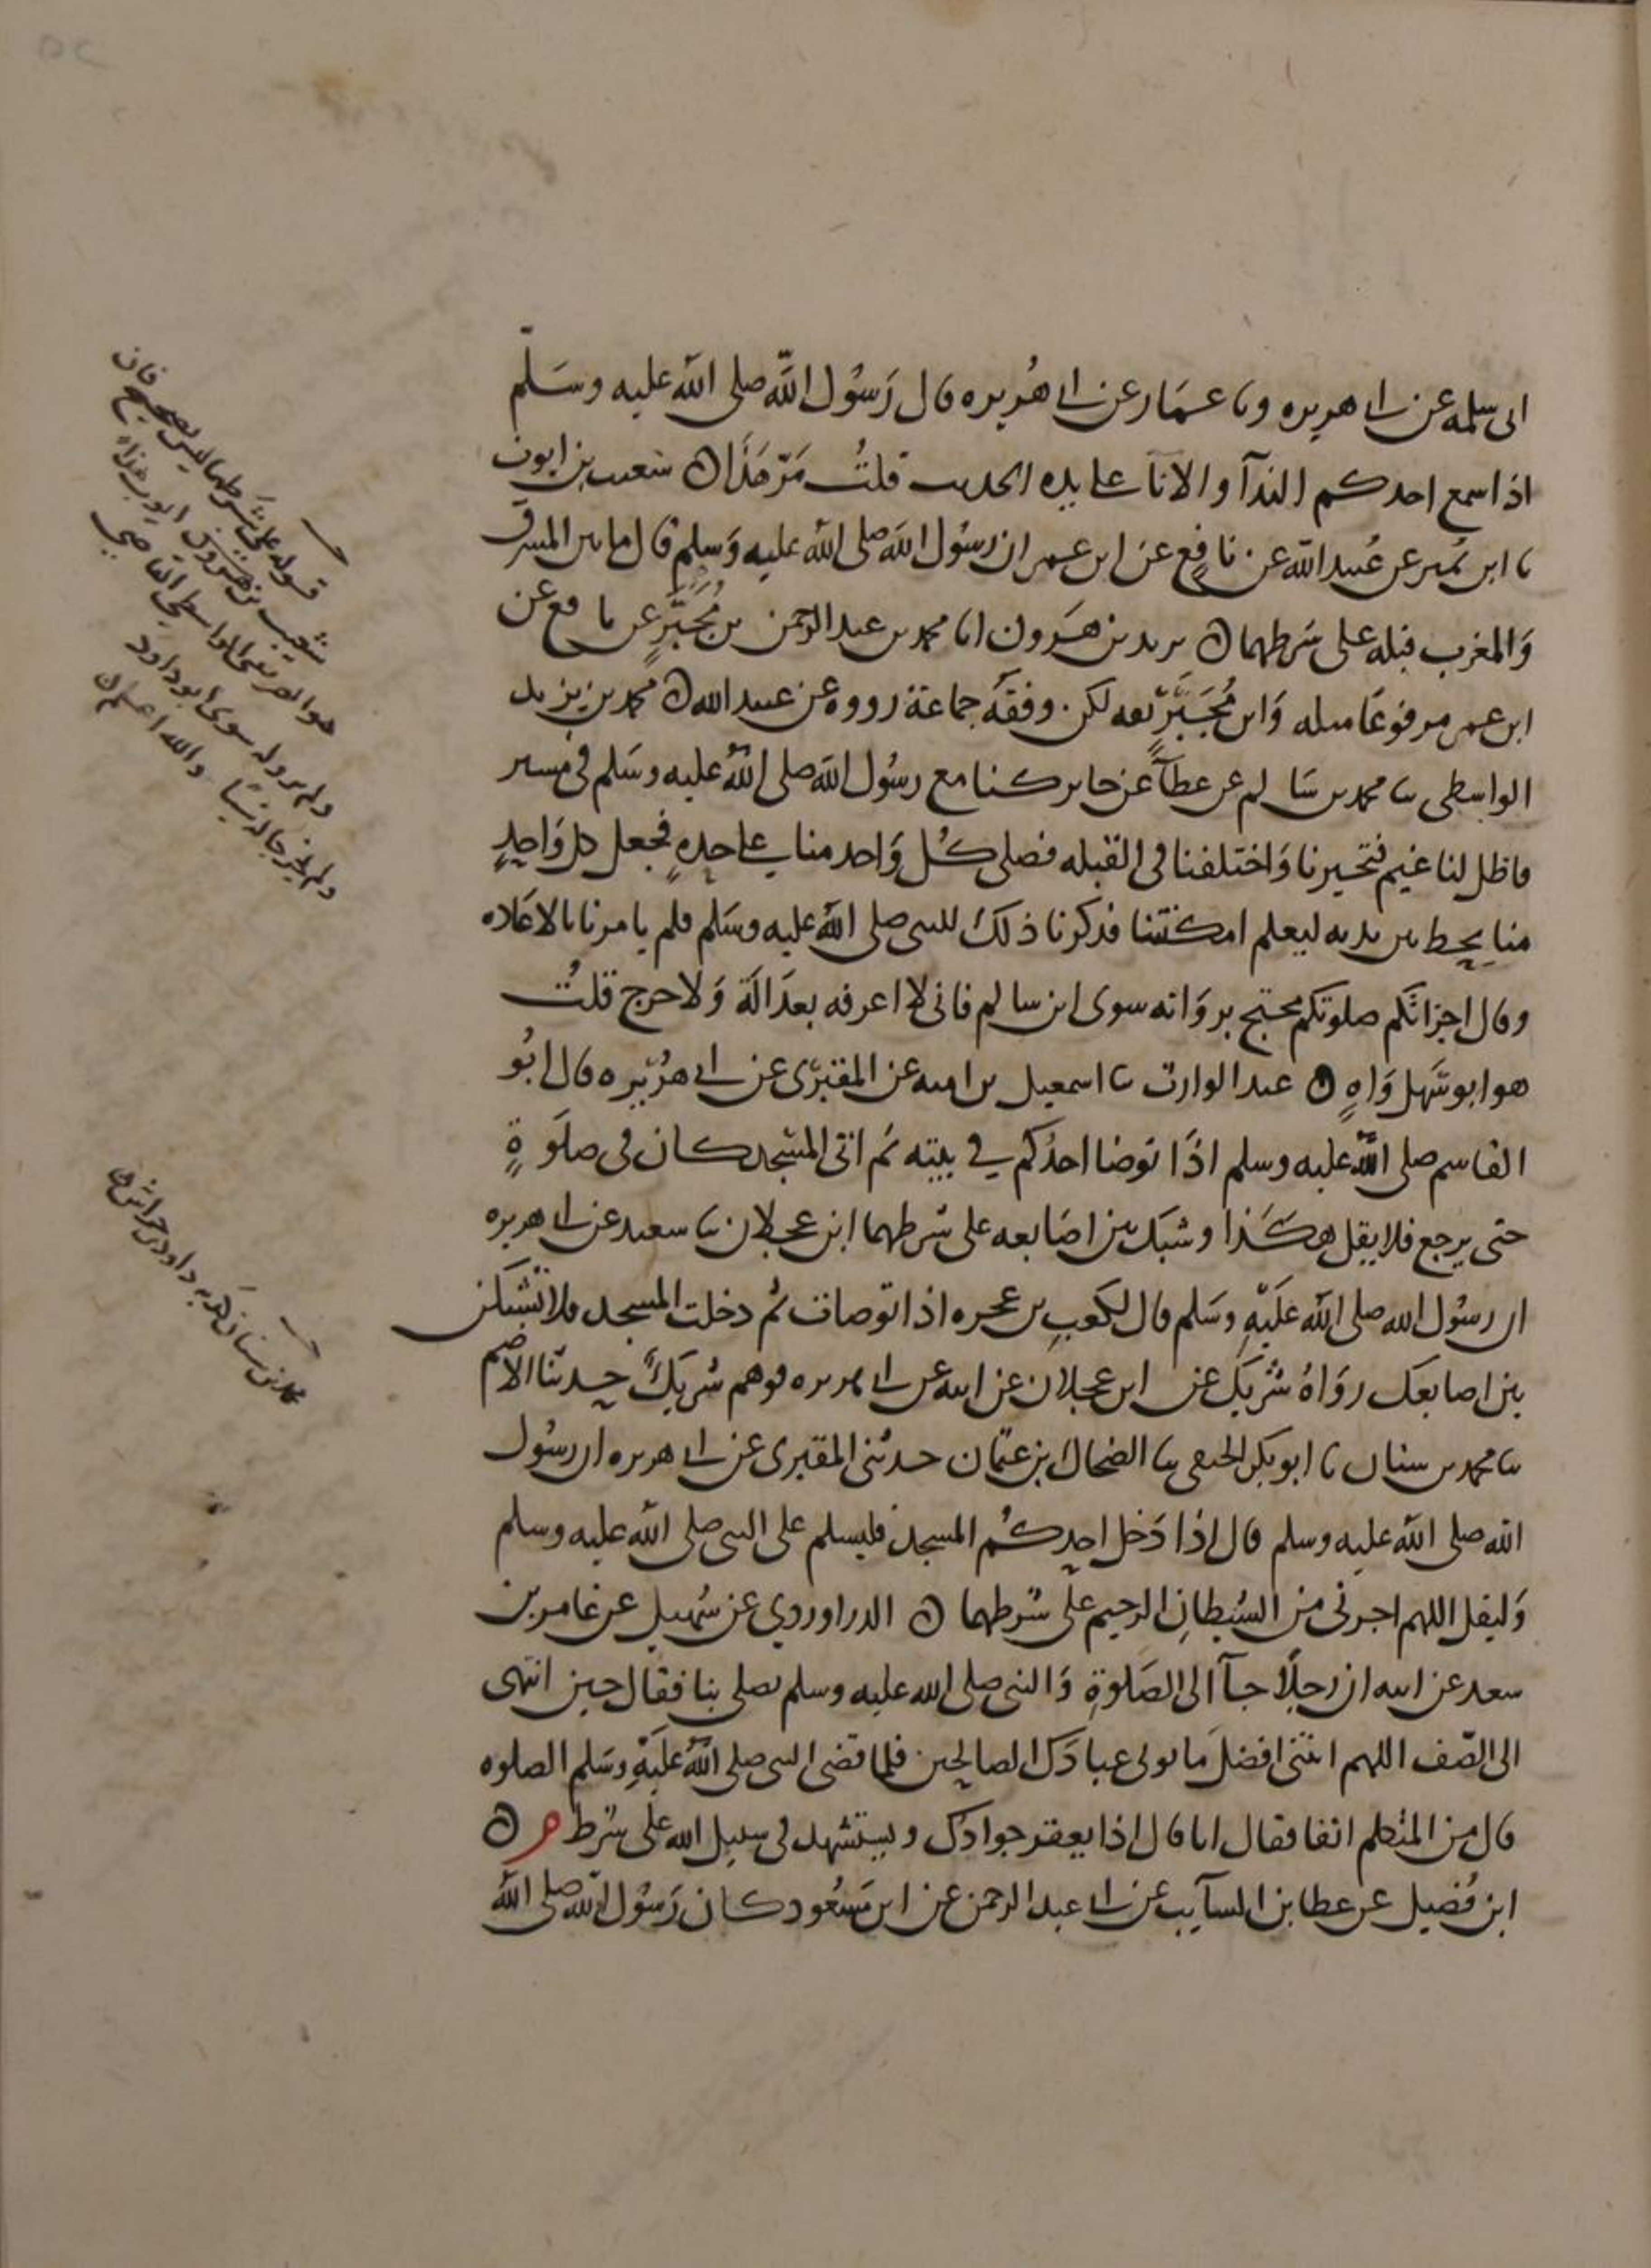 ابى سلمه عن ابى هريره ونا عمار عن ابى هريره قال رسول الله صلى الله عليه وسلم
اذا سمع احدكم الندآ والانآ على يده الحديث قلت مر هذا ن شعيب بن ايوب
نا ابن نمير عن عبيد الله عن نافع عن ابن عمر ان رسول الله صلى الله عليه وسلم قال ما بين المشرق
والمغرب قبله على شرطهما ن يزيد بن هرون انا محمد بن عبد الرحمن بن مجبر عن نافع عن
ابن عمر مرفوعا مثله وابن مجبر ثقه لكن وقفه جماعة رووه عن عبيد الله ن محمد بن يزيد
الواسطى نا محمد بن سالم عن عطآ عن جابر كنا مع رسول الله صلى الله عليه وسلم فى مسير
فاظل لنا غيم فتحيرنا واختلفنا فى القبله فصلى كل واحد منا على حده فجعل كل واحد
منا يخط بين يديه ليعلم امكنتنا فذكرنا ذلك للنبى صلى الله عليه وسلم فلم يامرنا بالاعاده
وقال اجزاتكم صلوتكم محتج برواته سوى ابن سالم فانى لا اعرفه بعدالة ولا جرح قلت
هو ابو سهل واه ن عبد الوارث نا اسمعيل بن اميه عن المقبرى عن ابى هريره قال ابو
القاسم صلى الله عليه وسلم اذا توضا احدكم في بيته ثم اتى المسجد كان فى صلوة
حتى يرجع فلا يقل هكذا وشبك بين اصابعه على شرطهما ابن عجلان نا سعيد عن ابى هريره
ان رسول الله صلى الله عليه وسلم قال لكعب بن عجره اذا توضات ثم دخلت المسجد فلا تشبكن
بين اصابعك رواه شريك عن ابن عجلان عن ابيه عن ابى هريره فوهم شريك حدثنا الاصم
نا محمد بن سنان نا ابو بكر الحنفى نا الضحاك بن عثمان حدثنى المقبرى عن ابى هريره ان رسول
الله صلى الله عليه وسلم قال اذا دخل احدكم المسجد فليسلم على النبى صلى الله عليه وسلم
وليقل اللهم اجرنى من الشيطان الرجيم على شرطهما ن الدراوردي عن سهيل عن عامر بن
سعد عن ابيه ان رجلا جآ الى الصلوة والنبى صلى الله عليه وسلم يصلى بنا فقال حين انتهى
الى الصف اللهم اتنى افضل ما توتى عبادك الصالحين فلما قضى النبى صلى الله عليه وسلم الصلوه
قال من المتكلم انفا فقال انا قال اذا يعقر جوادك ويستشهد فى سبيل الله على شرط م ن
ابن فضيل عن عطا بن السآيب عن ابى عبد الرحمن عن ابن مسعود كان رسول الله صلى الله
قوله على شرطهما ليس بصحيح فان
شعيب بن ايوب
هو الصريفينى الواسطى القاضي
ولم يرو له سوى ابو داود
ولم يخرجا له شيا والله اعلم ن
محمد بن سنان كذبه ابو داود وابن خراش